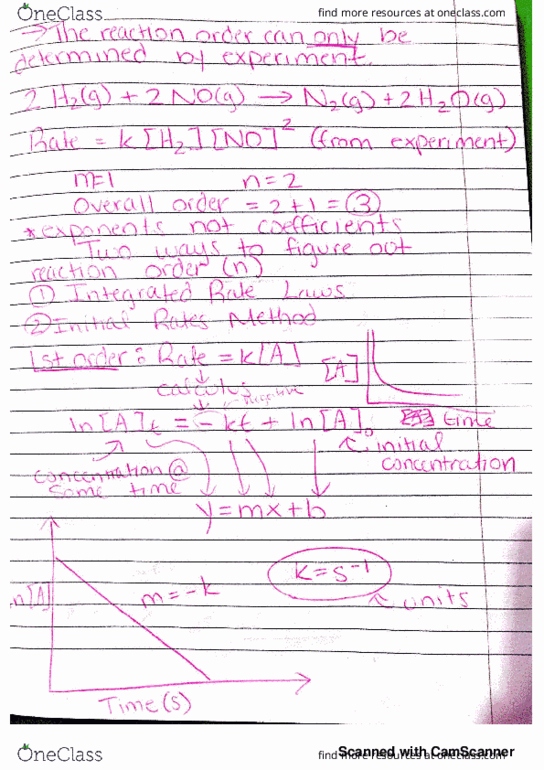 OneClass
find more resources at oneclass.com
→ The reaction order can only be
determined by experiment.
2 H₂(g) + 2 NO(g) → N₂(g) + 2 H₂O(g)
Rate = k [H₂][NO]² (from experiment)
m=1 n=2
Overall order = 2+1 = 3
*exponents not coefficients
Two ways to figure out
reaction order (n)
① Integrated Rate Laws
② Initial Rates Method
1st order: Rate = k[A]
[A]
calculus
negative
ln[A]t = -kt + ln[A]₀
time
concentration @
some time
initial
concentration
y=mx+b
ln[A]
m=-k
k=s⁻¹
units
Time(s)
OneClass
find more resources at oneclass.com
Scanned with CamScanner